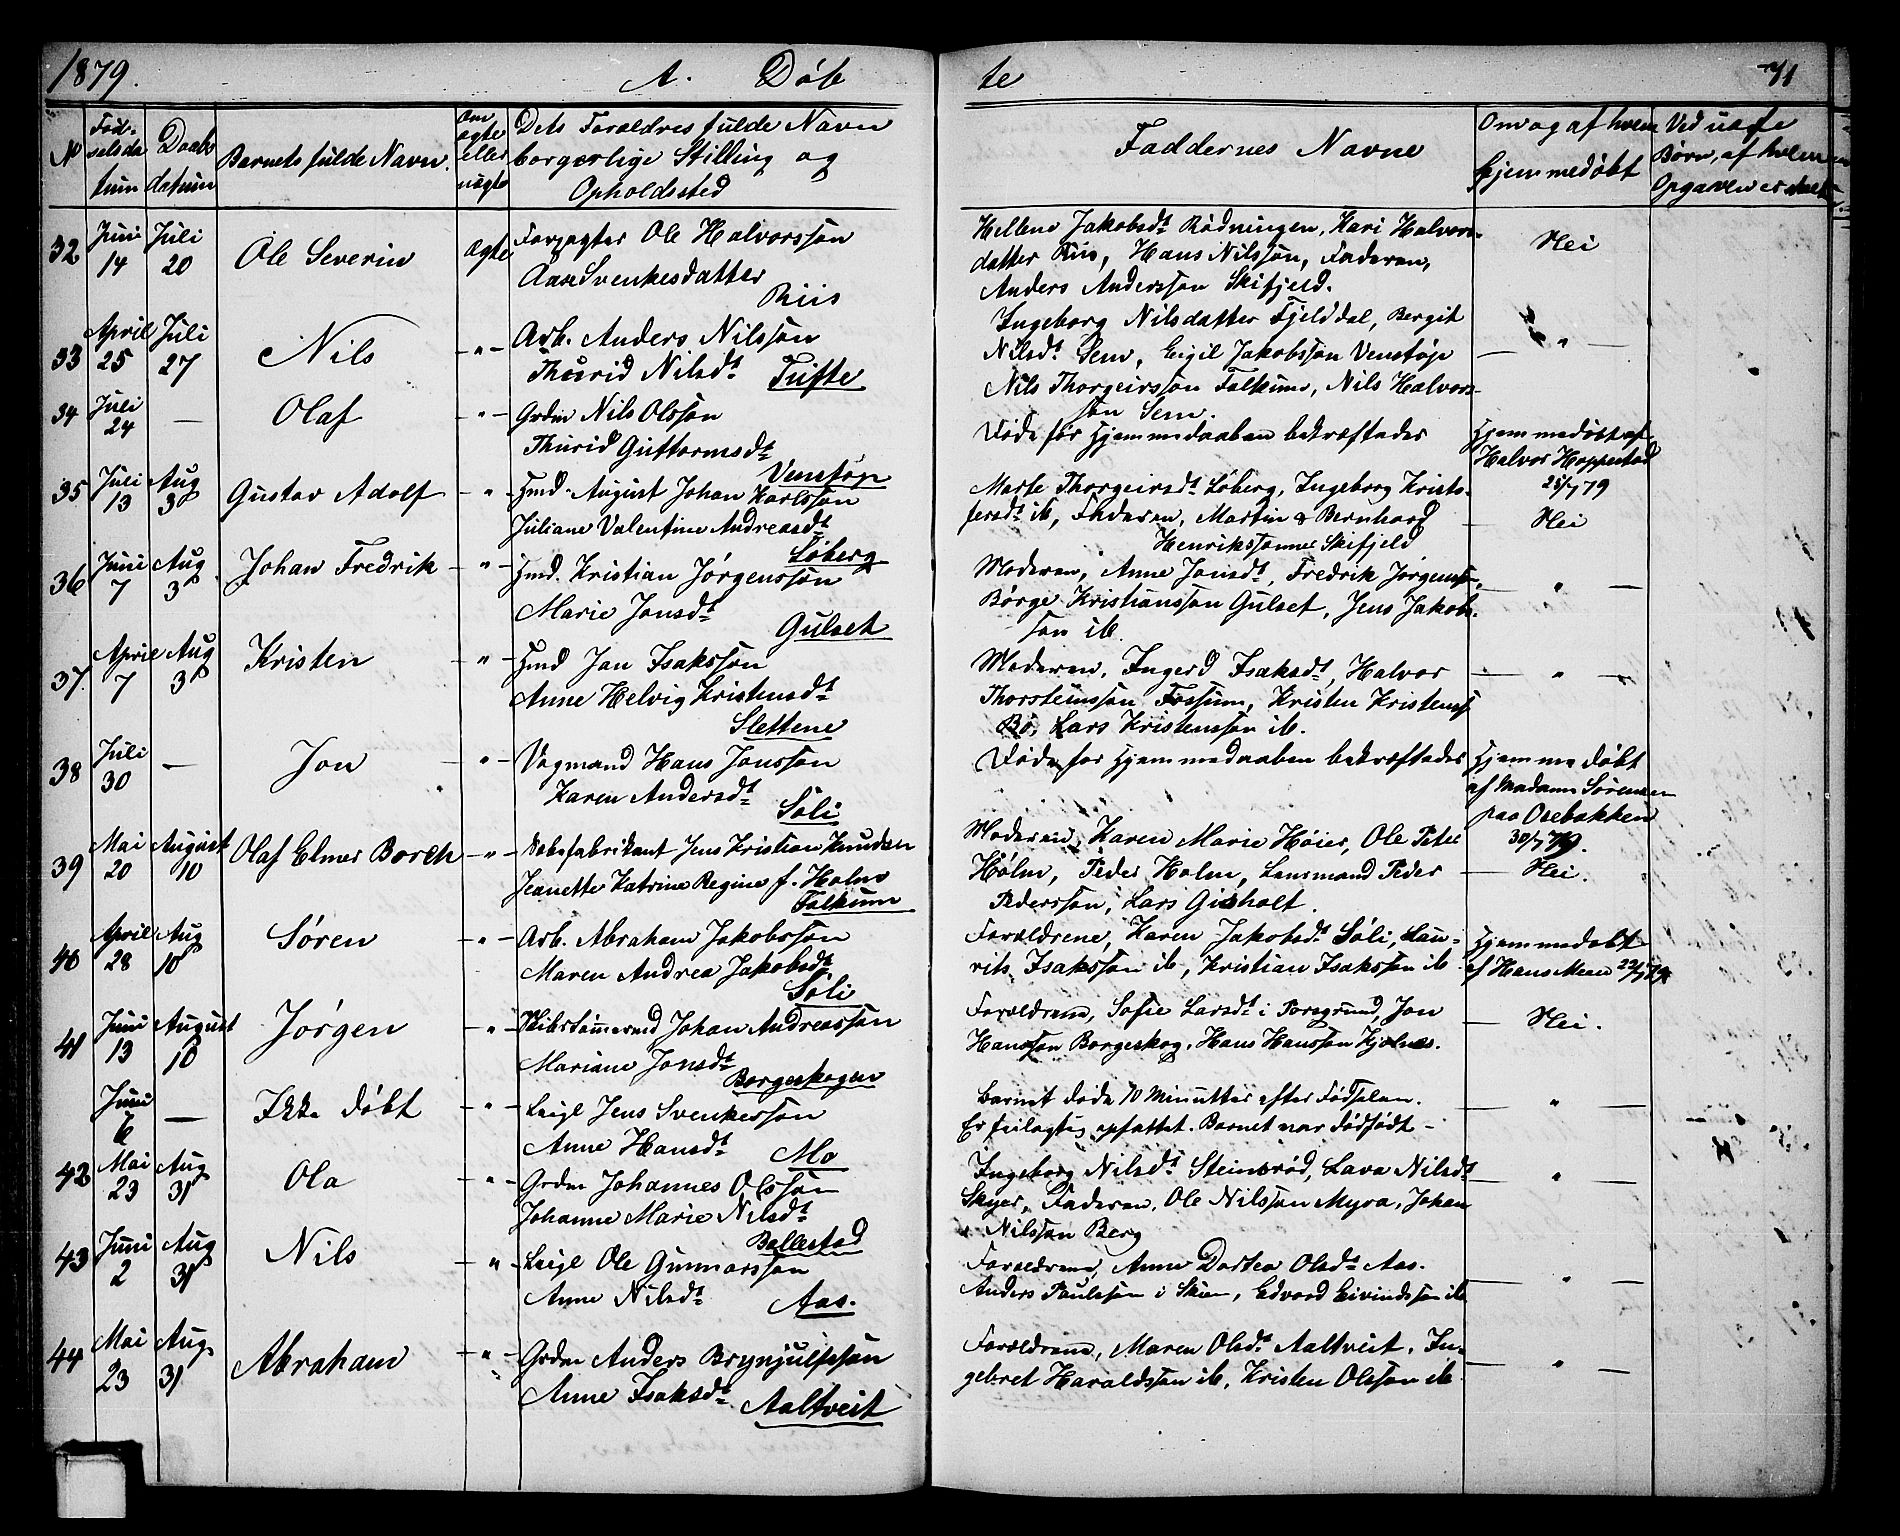 1879. A. Døb
te 71
No Fød-selsdatum Daabsdatum Barnets fulde Navn. Om ægte eller uægte Dets Forældres fulde Navn borgerlige Stilling og Opholdssted
Faddernes Navne Om og af hvem hjemmedøbt Ved uægte Børn, af hvem Opgaven er
32 Juni 14 Juli 20 Ole Severin ægte Forpagter Ole Halvorssøn
Aase Svenkesdatter
Riis
Hellene Jakobsdt Rødningen, Kari Halvors-
datter Riis, Hans Nilssøn, Faderen,
Anders Anderssøn Skifjeld.
Nei
33 April 25 Juli 27 Nils - " - Arb. Anders Nilssøn
Thurid Nilsdt Tufte
Ingeborg Nilsdatter Fjelddal, Bergit
Nilsdt Sem, Eigil Jakobssøn Venstøp
Nils Thorgeirssøn Falkum, Nils Halvors-
søn Sem.
— " —
34 Juli 24 — Olaf " - Grdm Nils Olssøn
Thurid Guttormsdt
Venstøp
Døde før Hjemmedaaben bekræftedes
Hjemmedøbt af
Halvor Hoppestad
25/7 79
35 Juli 13 Aug 3 Gustav Adolf - " - Hmd. August Johan Karlssøn
Juliane Valentine Andreasdt
Løberg
Marte Thorgeirsdt Løberg, Ingeborg Kristo-
fersdt ib, Faderen, Martin & Bernhard
Henrikssønner Skifjeld
— Nei
36 Juni 7 Aug 3 Johan Fredrik - " - Hmd. Kristian Jørgenssøn
Marie Jonsdt
Gulset
Moderen, Anne Jonsdt, Fredrik Jørgenssøn,
Børge Kristianssøn Gulset, Jens Jakobs-
søn ib.
— " —
37. April 7 Aug 3 Kristen - " - Hmd Jan Isakssøn
Anne Helvig Kristensdt
Slettene
Moderen, Ingerd Isaksdt, Halvor
Thorsteinssøn Fossum, Kristen Kristenss
Bø, Lars Kristenssøn ib.
— " —
38 Juli 30 — Jon - " - Vogmand Hans Jonssøn
Karen Andersdt
Søli
Døde før Hjemmedaaben bekræftedes
Hjemmedøbt
af Madam Sørensen
paa Osebakken
30/7 79.
39 Mai 20 August 10 Olaf Elmer Borch - " - Sæbefabrikant Jens Kristian Knudsen
Jeanette Katrine Regine f. Holm
Falkum
Moderen, Karen Marie Høier, Ole Peter
Holm, Peder Holm, Lensmand Peder
Pederssøn, Lars Gisholt.
— Nei.
40 April 28 Aug 10 Søren - " - Arb. Abraham Jakobssøn
Maren Andrea Jakobsdt
Søli
Forældrene, Karen Jakobsdt Søli, Lau-
rits Isakssøn ib, Kristian Isakssøn ib
Hjemmedøbt
af Hans Meen
41 Juni 13 August 10 Jørgen - " - Skibstømmermd Johan Andreassøn
Mariane Jonsdt
Borgeskogen
Forældrene, Sofie Larsdt i Porsgrund, Jon
Hanssøn Borgeskog, Hans Hanssøn Kjølnes.
— Nei.
Juni 6 — Ikke døbt - " - Leigl Jens Svenkessøn
Anne Hansdt Mo
Barnet døde 10 Minutter efter Fødselen.
Er feilagtig opfattet. Barnet var dødfødt —
— " —
42 Mai 23 Aug 31 Ola - " - Grdm Johannes Olssøn
Johanne Marie Nilsdt
Ballestad
Ingeborg Nilsdt Steinsrød, Lava Nilsdt
Skyer, Faderen, Ole Nilssøn Myra, Johan
Nilssøn Berg
"
43 Juni 2 Aug 31 Nils - " - Leigl Ole Gunnarssøn
Anne Nilsdt Aas.
Forældrene, Anne Dortea Olsdt Aas.
Anders Paulssøn i Skien, Edvard Eivindssøn ib
— " —
44 Mai 23 Aug. 31 Abraham - " - Grdm Anders Brynjulfssøn
Anne Isaksdt Aaltveit
Forældrene, Maren Olsdt Aaltveit, In-
gebret Haraldssøn ib, Kristen Olssøn ib.
— " —